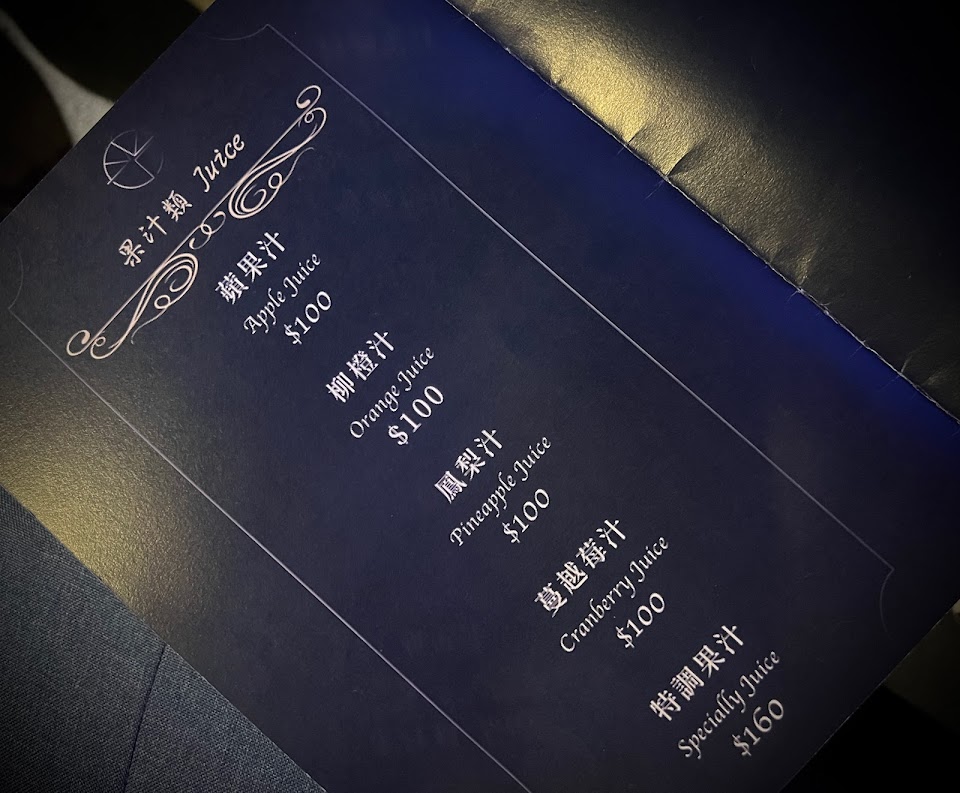 果汁類 Juice
蘋果汁
Apple Juice
$100
柳橙汁
Orange Juice
$100
鳳梨汁
Pineapple Juice
$100
蔓越莓汁
Cranberry Juice
$100
特調果汁
Specially Juice
$160